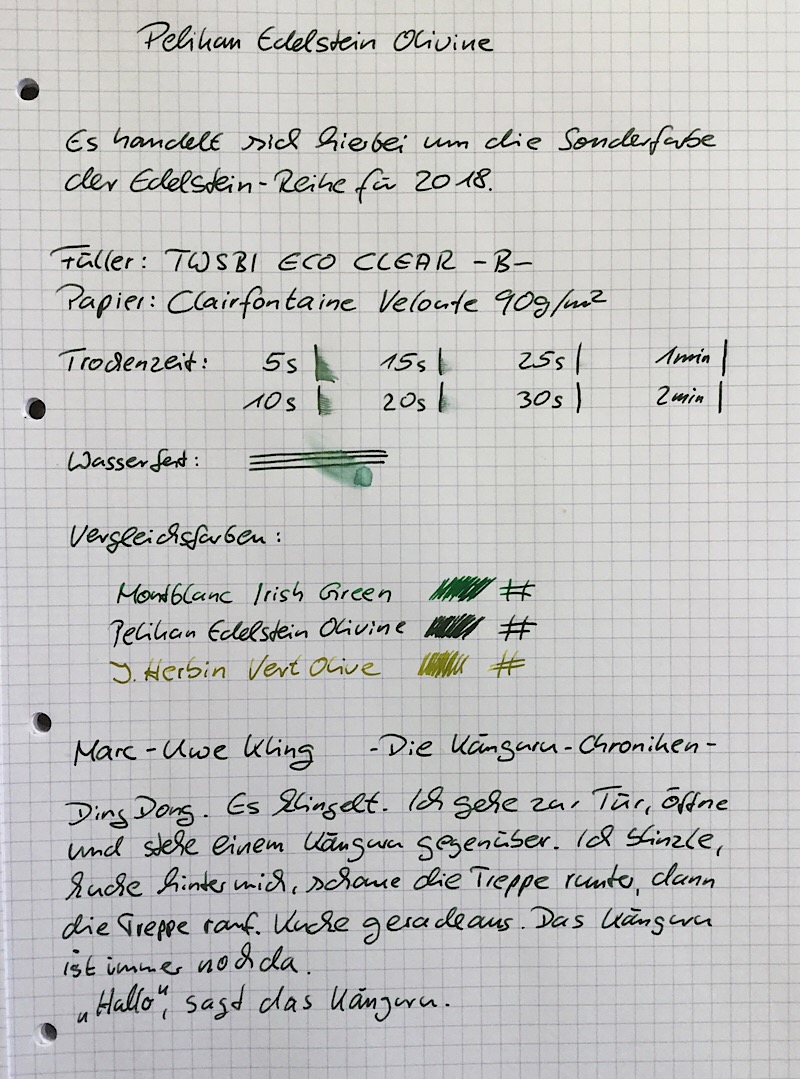 Pelikan Edelstein Olivine
Es handelt sich hierbei um die Sonderfarbe
der Edelstein-Reihe für 2018.
Füller: TWSBI ECO CLEAR -B-
Papier: Clairfontaine Veloute 90g/m²
Trockenzeit: 5s 15s 25s 1min
10s 20s 30s 2min
Wasserfest:
Vergleichsfarben:
Montblanc Irish Green #
Pelikan Edelstein Olivine #
J. Herbin Vert Olive #
Marc-Uwe Kling -Die Känguru-Chroniken-
Ding Dong. Es klingelt. Ich gehe zur Tür, öffne
und stehe einem Känguru gegenüber. Ich blinzle,
kucke hinter mich, schaue die Treppe runter, dann
die Treppe rauf. Kucke geradeaus. Das Känguru
ist immer noch da.
„Hallo“, sagt das Känguru.